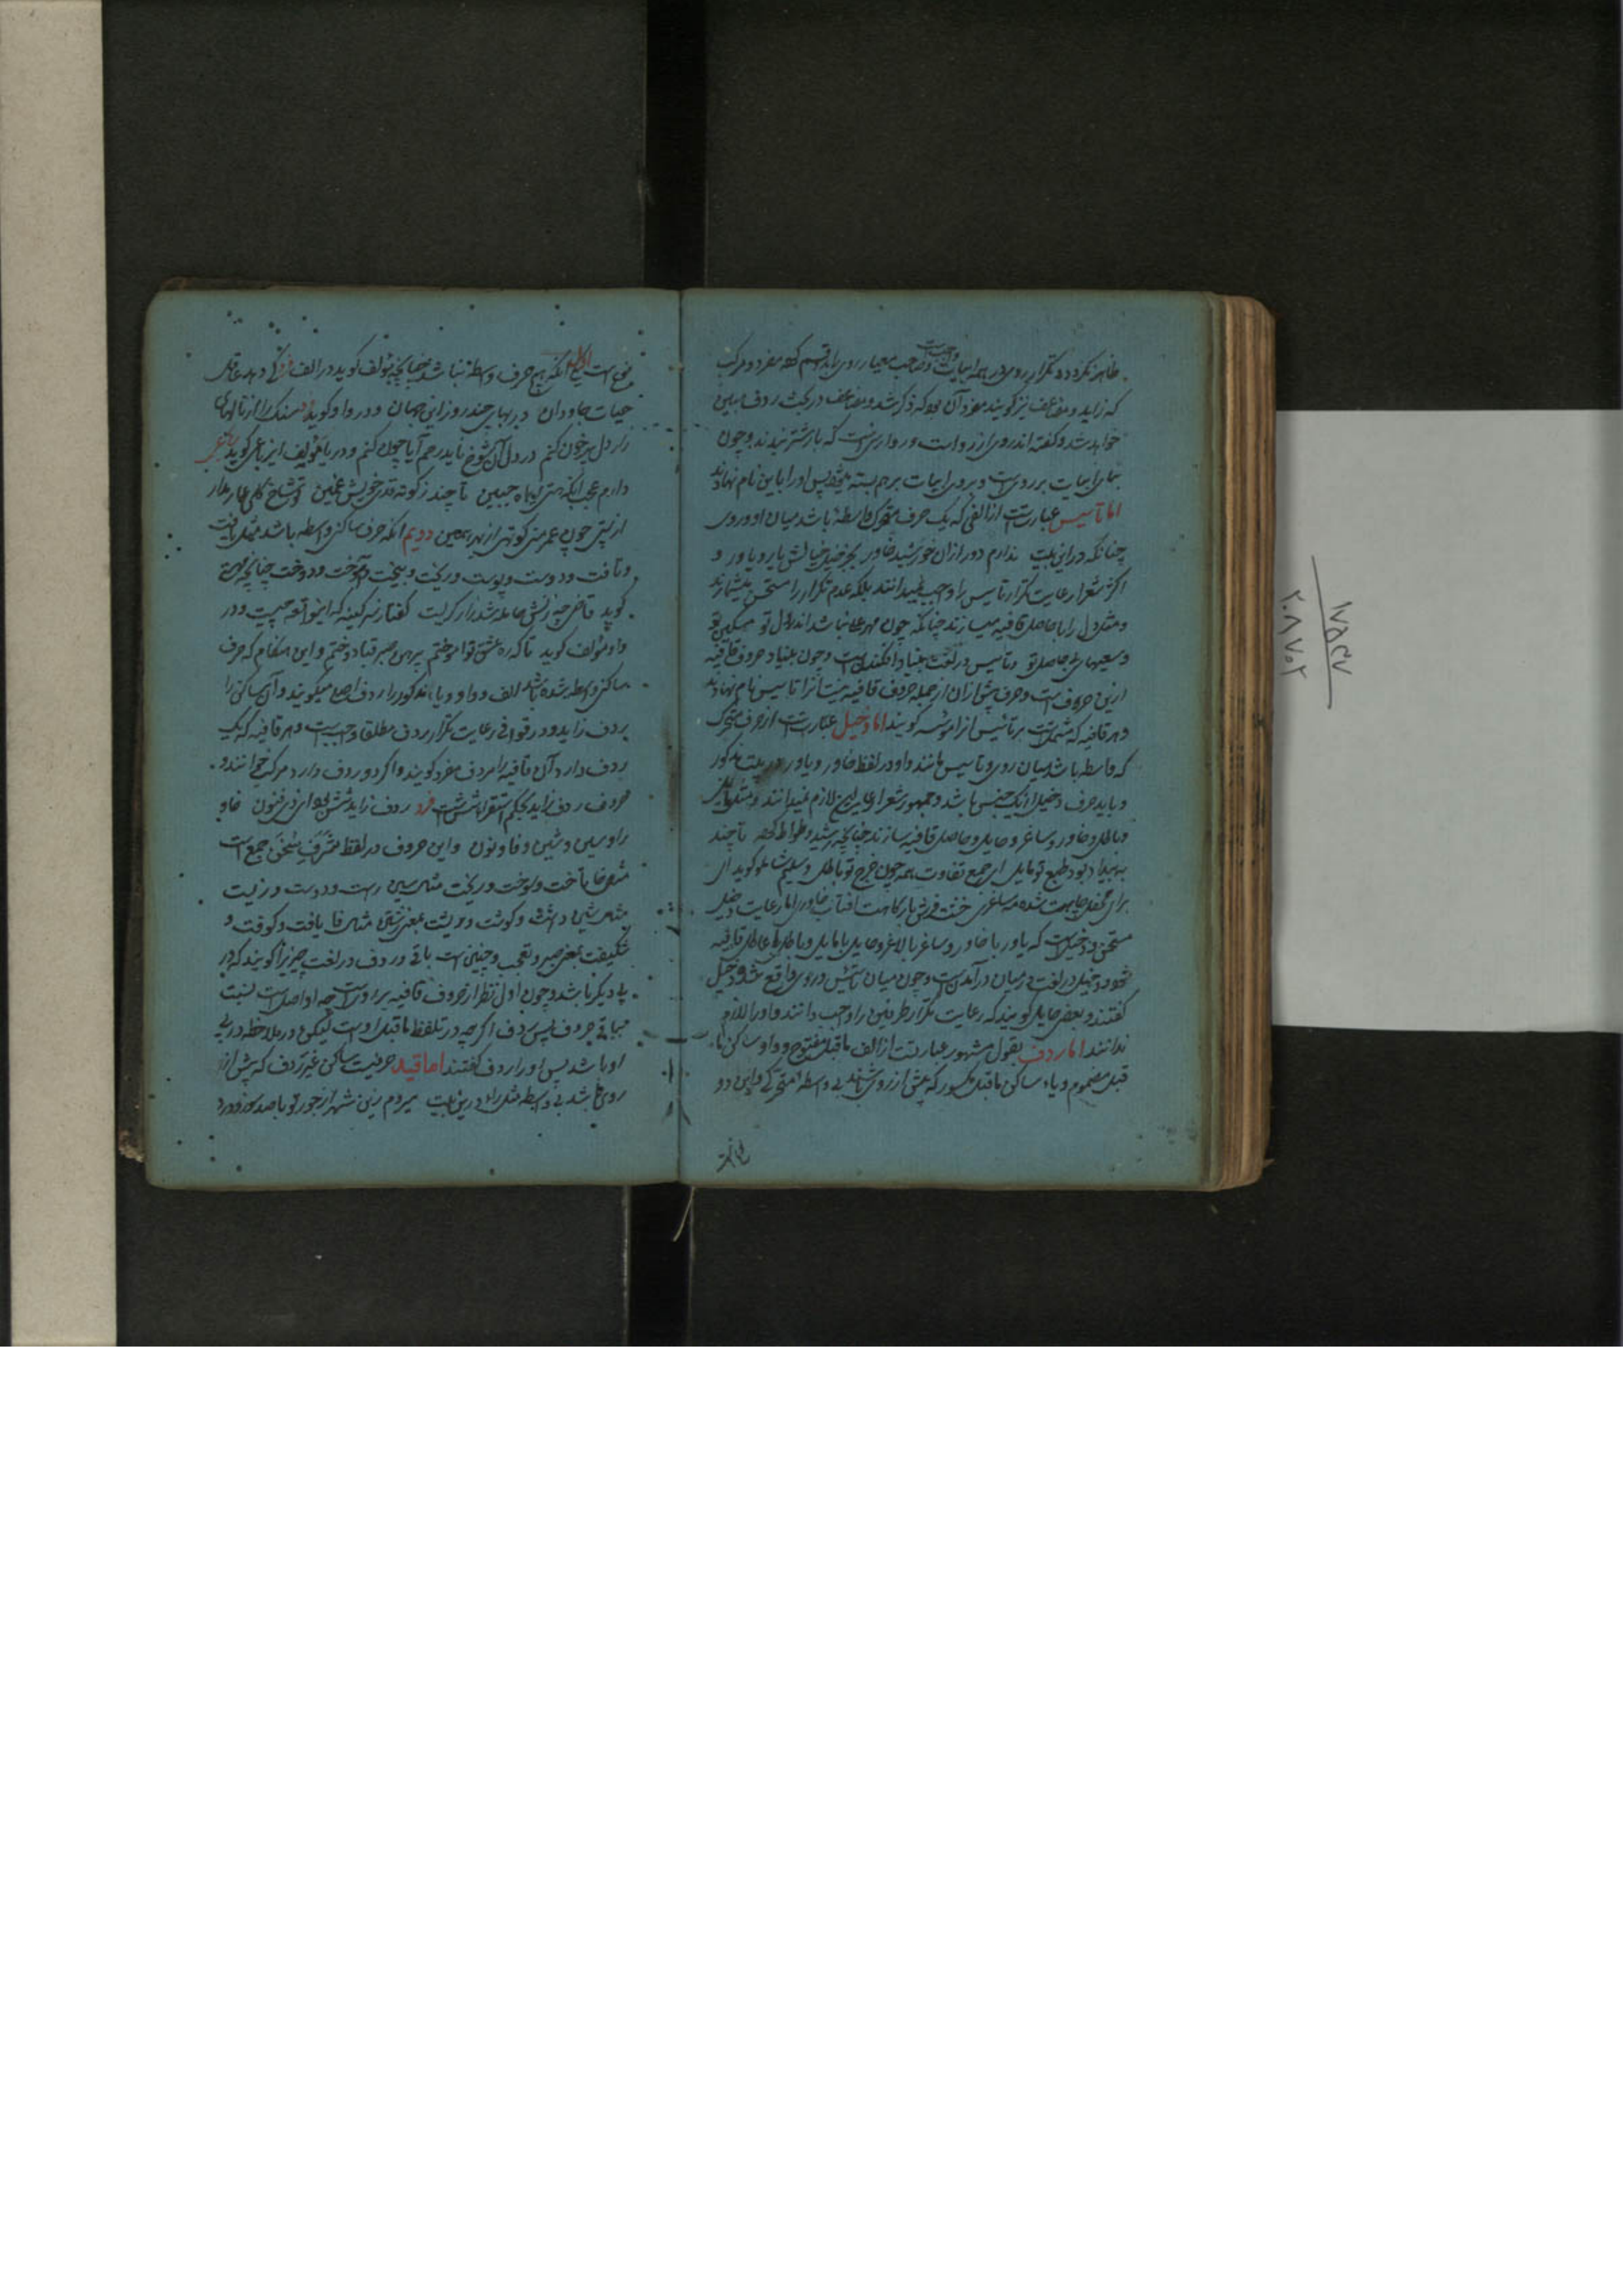 ظاهر نکردد و تکرار روی در همه ابیات واجبست و صاحب معیار روی را بدو قسم کرده مفرد و مرکب
که زاید و مضاعف نیز گویند مفرد آن بود که ذکر شد و مضاعف در بحث ردف مبین
خواهد شد و گفته اند روی از رواست و روا رسنیست که بار شتر بندند و چون
بنای ابیات بر رویست و بروی ابیات بر هم بسته میشود پس او را باین نام نهادند
اما تاسیس عبارتست از الفی که یک حرف متحرک واسطه باشد میان او و روی
چنانکه درین بیت ندارم دور از آن خورشید خاور بجز خیل خیالش یار و یاور و
اکثر شعرا رعایت تکرار تاسیس را واجب نمیدانند بلکه عدم تکرار را مستحسن میشمارند
و مثل دل را با حاصل قافیه میسازند چنانکه چون مهر علی نباشد اندر دل تو مسکین تو
و سعیهای بیحاصل تو و تاسیس در لغت بنیاد افکندنست و چون بنیاد حروف قافیه
ازین حروفست و حرف پیش ازان از جمله حروف قافیه نیست آنرا تاسیس نام نهادند
و هر قافیه که مشتملست بر تاسیس آنرا موسسه گویند اما دخیل عبارتست از حرف متحرک
که واسطه باشد میان روی و تاسیس مانند واو در لفظ خاور و یاور در بیت مذکور
و باید حرف دخیل از یک جنس باشد و جمهور شعرا رعایت این لازم نمیدانند و مثل
و باطل و خاور و ساغر و مایل و حاصل قافیه سازند چنانچه رشید وطواط گفته تا چند
به بیداد بود طبع تو مایل ای جمع تفاوت همه چون خرج تو باطل و سلیم گوید ای
برای محفل جاهت شده مه ساغری خشت فرش بارگاهت آفتاب خاوری اما رعایت دخیل
مستحسن و دخیل است که یاور با خاور و ساغر با لاغر و حایل با مایل و باطل با عاطل قافیه
شود و دخیل در لغت در میان درآمدنست و چون میان تاسیس و روی واقع شد دخیل
گفتند و بعضی حایل گویند که رعایت تکرار طرفین را واجب دانند و او را لازم
ندانند اما ردف بقول مشهور عبارتست از الف ماقبل مفتوح و واو ساکن ما
قبل مضموم و یاء ساکن ماقبل مکسور که پیش از روی باشند بی واسطه متحرکی و این دو
نوع است اول آنکه هیچ حرف واسطه نباشد چنانچه مولف گوید در الف فرد کی دهد عاقل
حیات جاودان در بهای چند روز این جهان و در واو گوید سنک را از نالهای
زار دل پر خون کنم در دل آن شوخ ناید رحم آیا چون کنم و در یا مولف این رباعی گوید رباعی
دارم عجب آنکه هستی ای ماه جبین تا چند ز کوته قدی خویش غمین تو شاخ گلی بهار
از پستی چون عمر منی کوتهی از بهر همین دویم آنکه حرف ساکنی واسطه باشد مثل یافت
و تافت و دوست و پوست و ریخت و بیخت و آموخت و دوخت چنانچه
گوید قاضی چه زنش حامله شد زار گریست گفتا ز سر کینه که این واقعه چیست و در
واو مولف گوید تا که ره عشق تو آموختم پیرهن صبر قبا دوختم و این هنگام که حرف
ساکنی واسطه شده باشد الف و واو و یاء مذکور را ردف اصلی میگویند و آن ساکن را
ردف زاید و در قوافی رعایت تکرار ردف مطلقا واجبست و هر قافیه که یک
ردف دارد آن قافیه را مردف مفرد گویند و اگر دو ردف دارد مرکب خوانند و
حروف ردف زاید بحکم استقرا شش است فرد ردف زاید شش بود ای ذی فنون خا و
را و سین و شین و فا و نون و این حروف در لفظ شرف سخن جمع است
مثل خا باخت و سوخت و ریخت مثل سین راست و دوست و زیست
مثل شین داشت و گوشت و مثل فا یافت و کوفت و
شکیفت بمعنی صبر و تعجب و چنین است باقی و ردف در لغت چیزیرا گویند که در
پی دیگر باشد و چون اول نظر از حروف قافیه بر رویست چه او اصل است نسبت
بباقی حروف پس ردف اگرچه در تلفظ ماقبل اوست لیکن در ملاحظه در پی
او باشد پس او را ردف گفتند اما قید حرفیست ساکن غیر ردف که پیش از
روی باشد بی واسطه مثل را درین بیت میردم زین شهر از جور تو با صد سوز و درد